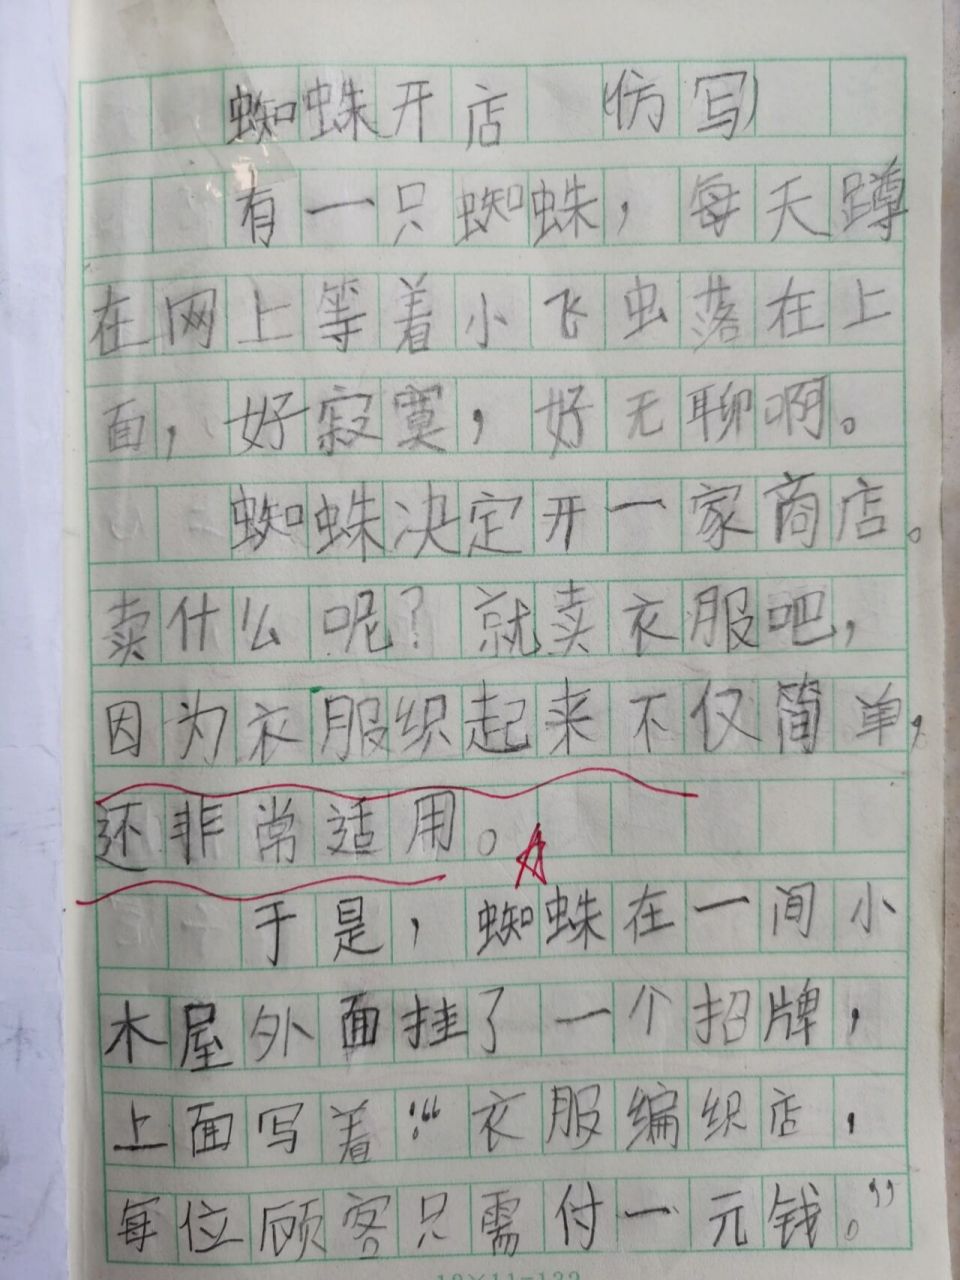 蜘蛛开店 (仿写)
有一只蜘蛛，每天蹲
在网上等着小飞虫落在上
面，好寂寞，好无聊啊。
蜘蛛决定开一家商店。
卖什么呢？就卖衣服吧，
因为衣服织起来不仅简单，
还非常适用。
于是，蜘蛛在一间小
木屋外面挂了一个招牌，
上面写着：“衣服编织店，
每位顾客只需付一元钱。”